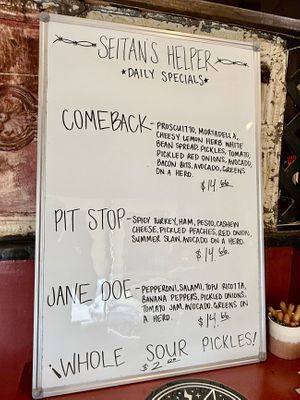 SEITAN'S HELPER
★DAILY SPECIALS★
COMEBACK - PROSCUITTO, MORTADELLA,
CHEESY LEMON HERB WHITE
BEAN SPREAD, PICKLES, TOMATO,
PICKLED RED ONIONS, AVOCADO,
BACON BITS, AVOCADO, GREENS
ON A HERO.
$14.66
PIT STOP - SPICY TURKEY, HAM, PESTO, CASHEW
CHEESE, PICKLED PEACHES, RED ONION,
SUMMER SLAW, AVOCADO ON A HERO.
$14.66
JANE DOE - PEPPERONI, SALAMI, TOFU RICOTTA,
BANANA PEPPERS, PICKLED ONIONS,
TOMATO JAM, AVOCADO, GREENS ON
A HERO.
$14.66
¡WHOLE SOUR PICKLES!
$2